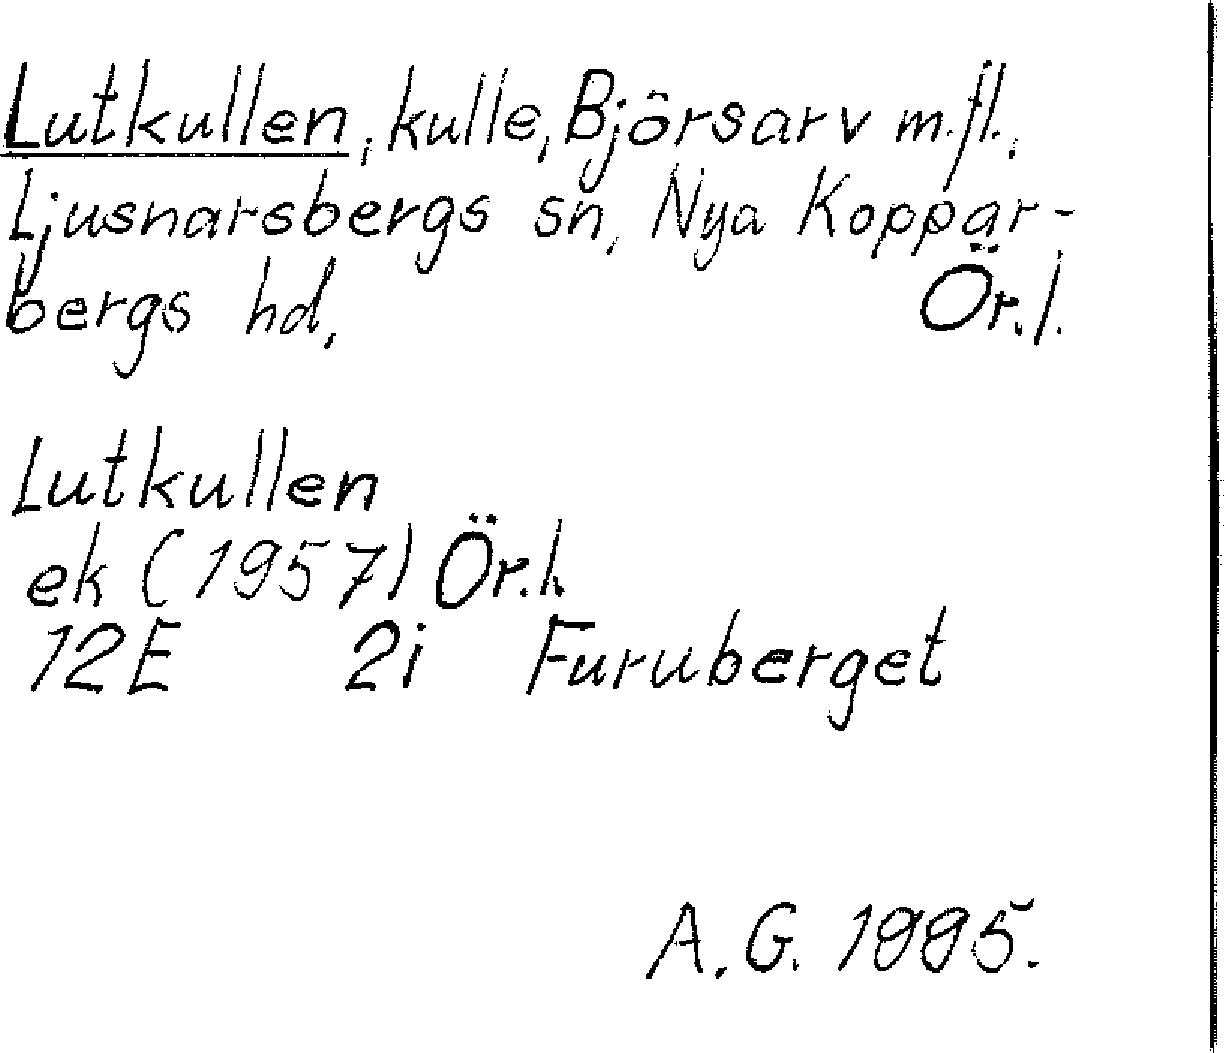 Lutkullen, kulle, Björsarv m.fl.,
Ljusnarsbergs sn, Nya Koppar-
bergs hd, Ör.l.
Lutkullen
ek (1957) Ör.l.
12E 2i Furuberget
A.G. 1995.